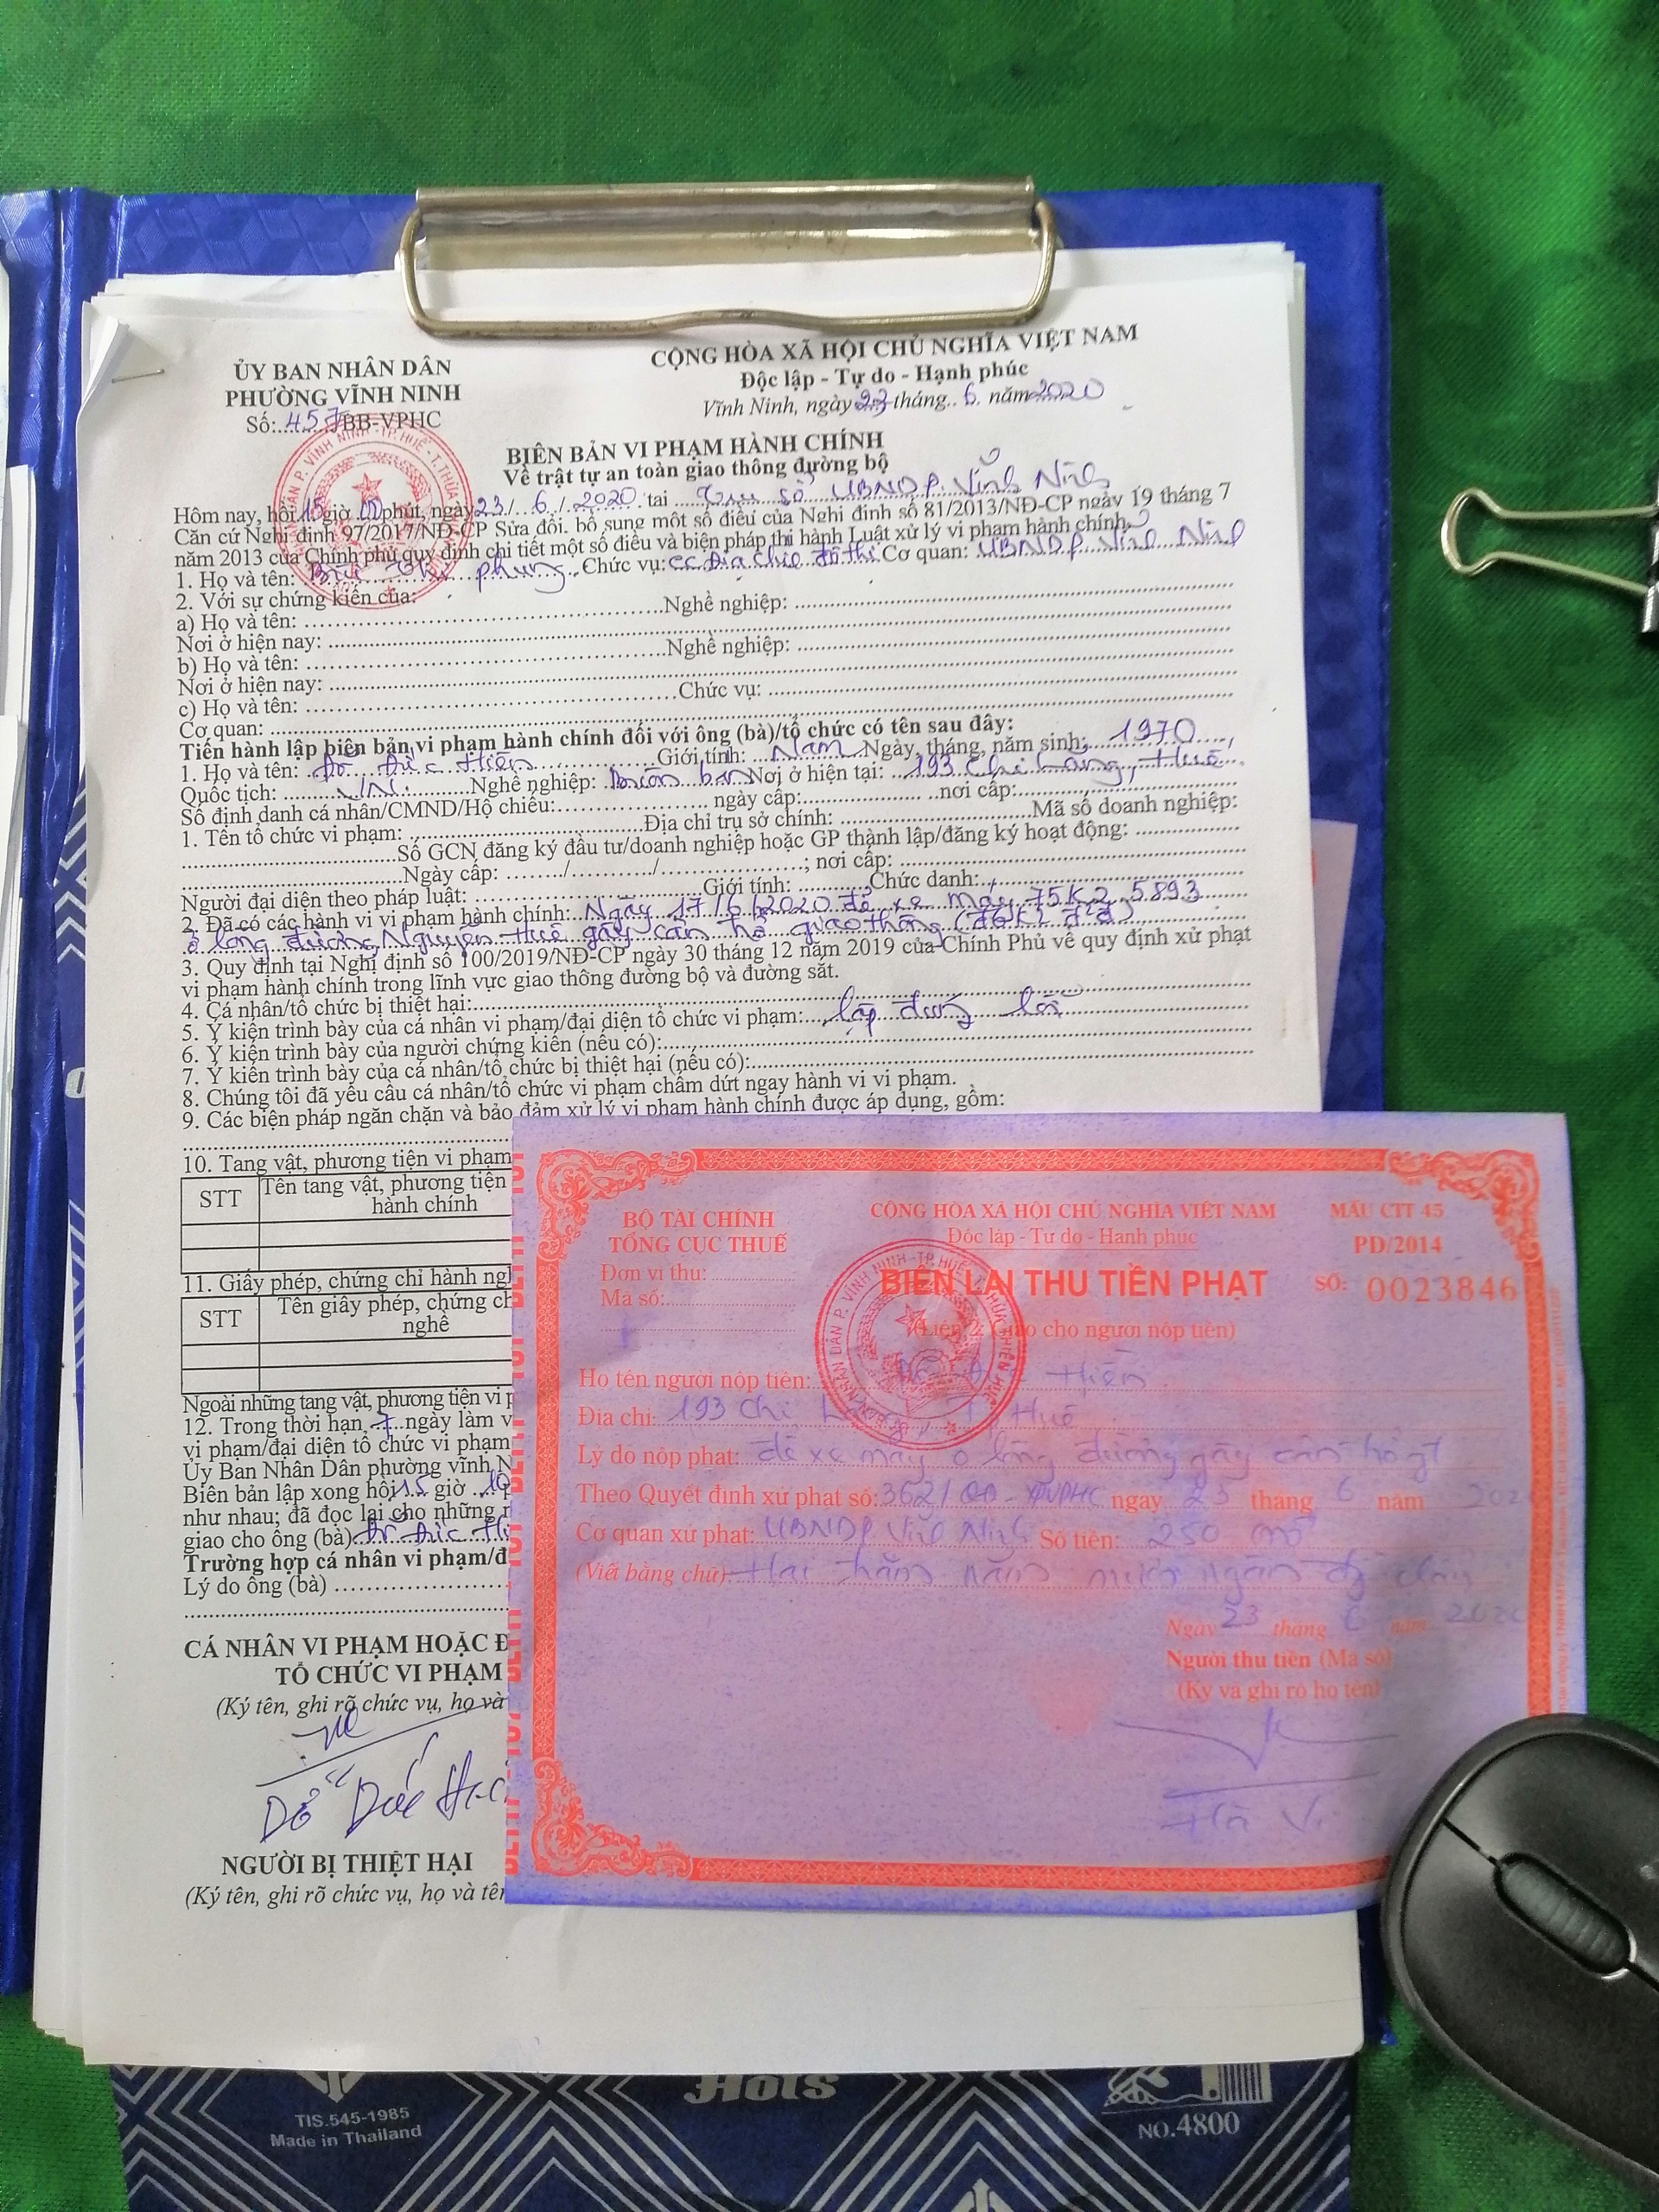 ỦY BAN NHÂN DÂN
PHƯỜNG VĨNH NINH
Số: 457/BB-VPHC
CỘNG HÒA XÃ HỘI CHỦ NGHĨA VIỆT NAM
Độc lập - Tự do - Hạnh phúc
Vĩnh Ninh, ngày 23 tháng 6 năm 2020
BIÊN BẢN VI PHẠM HÀNH CHÍNH
Về trật tự an toàn giao thông đường bộ
Hôm nay, hồi 15 giờ 00 phút, ngày 23/6/2020 tại Trụ sở UBND P. Vĩnh Ninh
Căn cứ Nghị định 97/2017/NĐ-CP Sửa đổi, bổ sung một số điều của Nghị định số 81/2013/NĐ-CP ngày 19 tháng 7
năm 2013 của Chính phủ quy định chi tiết một số điều và biện pháp thi hành Luật xử lý vi phạm hành chính.
1. Họ và tên: Phụng Chức vụ: CC Địa Chính đô thị Cơ quan: UBND P. Vĩnh Ninh
2. Với sự chứng kiến của:
a) Họ và tên: Nghề nghiệp:
Nơi ở hiện nay:
b) Họ và tên: Nghề nghiệp:
Nơi ở hiện nay:
c) Họ và tên: Chức vụ:
Cơ quan:
Tiến hành lập biên bản vi phạm hành chính đối với ông (bà)/tổ chức có tên sau đây:
1. Họ và tên: Đỗ Đức Hiền Giới tính: Nam Ngày, tháng, năm sinh: 1970
Quốc tịch: VN Nghề nghiệp: Buôn bán Nơi ở hiện tại: 193 Chi Lăng, Huế
Số định danh cá nhân/CMND/Hộ chiếu: ngày cấp: nơi cấp:
1. Tên tổ chức vi phạm: Địa chỉ trụ sở chính: Mã số doanh nghiệp:
Số GCN đăng ký đầu tư/doanh nghiệp hoặc GP thành lập/đăng ký hoạt động:
Ngày cấp: ......../............/..................; nơi cấp:
Người đại diện theo pháp luật: Giới tính: Chức danh:
2. Đã có các hành vi vi phạm hành chính: Ngày 17/6/2020 để xe máy 75K2 5893
ở lòng đường Nguyễn Huệ gây cản trở giao thông
3. Quy định tại Nghị định số 100/2019/NĐ-CP ngày 30 tháng 12 năm 2019 của Chính Phủ về quy định xử phạt
vi phạm hành chính trong lĩnh vực giao thông đường bộ và đường sắt.
4. Cá nhân/tổ chức bị thiệt hại:
5. Ý kiến trình bày của cá nhân vi phạm/đại diện tổ chức vi phạm: lập đúng lỗi
6. Ý kiến trình bày của người chứng kiến (nếu có):
7. Ý kiến trình bày của cá nhân/tổ chức bị thiệt hại (nếu có):
8. Chúng tôi đã yêu cầu cá nhân/tổ chức vi phạm chấm dứt ngay hành vi vi phạm.
9. Các biện pháp ngăn chặn và bảo đảm xử lý vi phạm hành chính được áp dụng, gồm:
10. Tang vật, phương tiện vi phạm
STT Tên tang vật, phương tiện
hành chính
11. Giấy phép, chứng chỉ hành ng
STT Tên giấy phép, chứng ch
nghề
Ngoài những tang vật, phương tiện vi p
12. Trong thời hạn 7 ngày làm v
vi phạm/đại diện tổ chức vi phạm
Ủy Ban Nhân Dân phường vĩnh N
Biên bản lập xong hồi 15 giờ 10
như nhau; đã đọc lại cho những n
giao cho ông (bà) Đỗ Đức Hi
Trường hợp cá nhân vi phạm/đ
Lý do ông (bà)
CÁ NHÂN VI PHẠM HOẶC Đ
TỔ CHỨC VI PHẠM
(Ký tên, ghi rõ chức vụ, họ và
Đỗ Đức Hiề
NGƯỜI BỊ THIỆT HẠI
(Ký tên, ghi rõ chức vụ, họ và tên
BỘ TÀI CHÍNH
TỔNG CỤC THUẾ
Đơn vị thu:
Mã số:
CỘNG HÒA XÃ HỘI CHỦ NGHĨA VIỆT NAM
Độc lập - Tự do - Hạnh phúc
MẪU CTT 45
PD/2014
BIÊN LAI THU TIỀN PHẠT
SỐ: 0023846
(Liên 2: Giao cho người nộp tiền)
Họ tên người nộp tiền: Đỗ Đức Hiền
Địa chỉ: 193 Chi Lăng, TP Huế
Lý do nộp phạt: để xe máy ở lòng đường gây cản trở gt
Theo Quyết định xử phạt số: 362/QĐ-XPVPHC ngày 23 tháng 6 năm 202
Cơ quan xử phạt: UBND P. Vĩnh Ninh Số tiền: 250
(Viết bằng chữ): Hai trăm năm mươi ngàn đồng chẵn
Ngày 23 tháng 6 năm 2020
Người thu tiền (Mã số)
(Ký và ghi rõ họ tên)
Hà Vi
TIS.545-1985
Made in Thailand
Hots
NO.4800